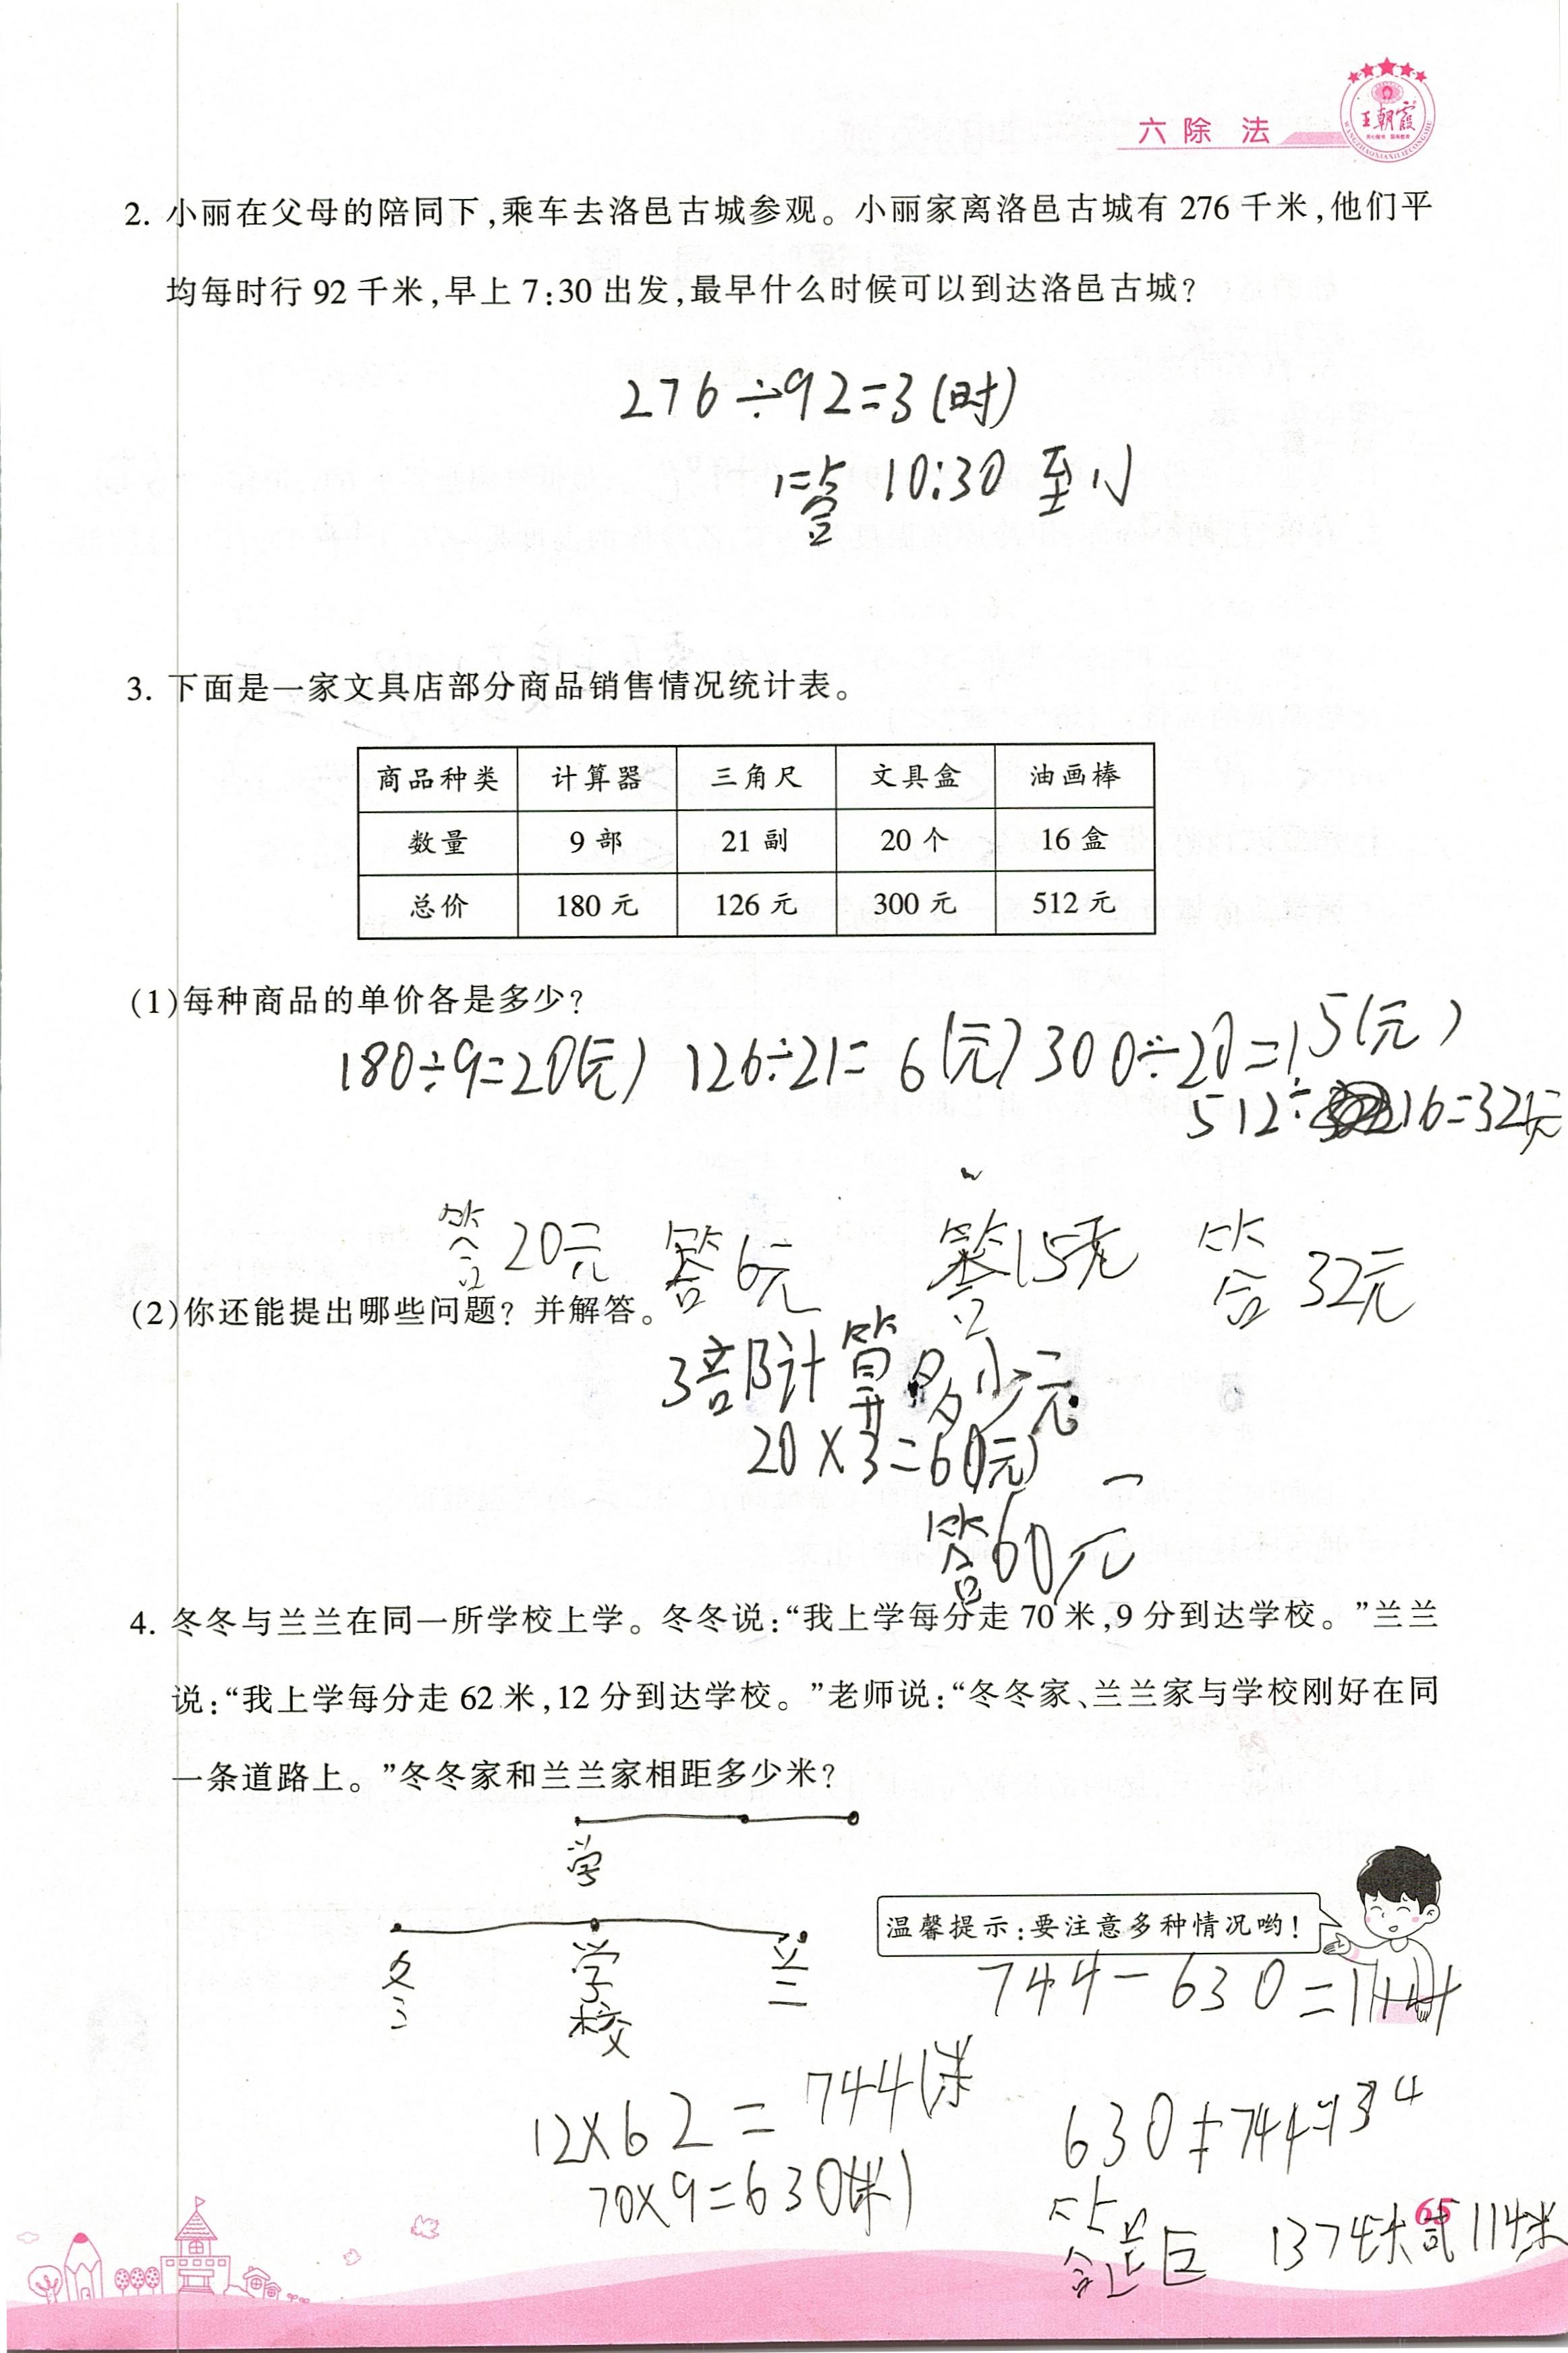 六 除 法
王朝霞
2. 小丽在父母的陪同下,乘车去洛邑古城参观。小丽家离洛邑古城有 276 千米,他们平
均每时行 92 千米,早上 7:30 出发,最早什么时候可以到达洛邑古城?
276÷92=3(时)
答 10:30 到
3. 下面是一家文具店部分商品销售情况统计表。
商品种类 计算器 三角尺 文具盒 油画棒
数量 9 部 21 副 20 个 16 盒
总价 180 元 126 元 300 元 512 元
(1)每种商品的单价各是多少?
180÷9=20(元) 126÷21=6(元) 300÷20=15(元)
512÷16=32元
答20元 答6元 答15元 答32元
(2)你还能提出哪些问题?并解答。
3部计算多少元
20×3=60(元)
答60元
4. 冬冬与兰兰在同一所学校上学。冬冬说:“我上学每分走 70 米,9 分到达学校。”兰兰
说:“我上学每分走 62 米,12 分到达学校。”老师说:“冬冬家、兰兰家与学校刚好在同
一条道路上。”冬冬家和兰兰家相距多少米?
学
冬 学校 兰
温馨提示:要注意多种情况哟!
744-630=114
12×62=744(米
70×9=630(米)
630+744=134
答 1374米或114米
65